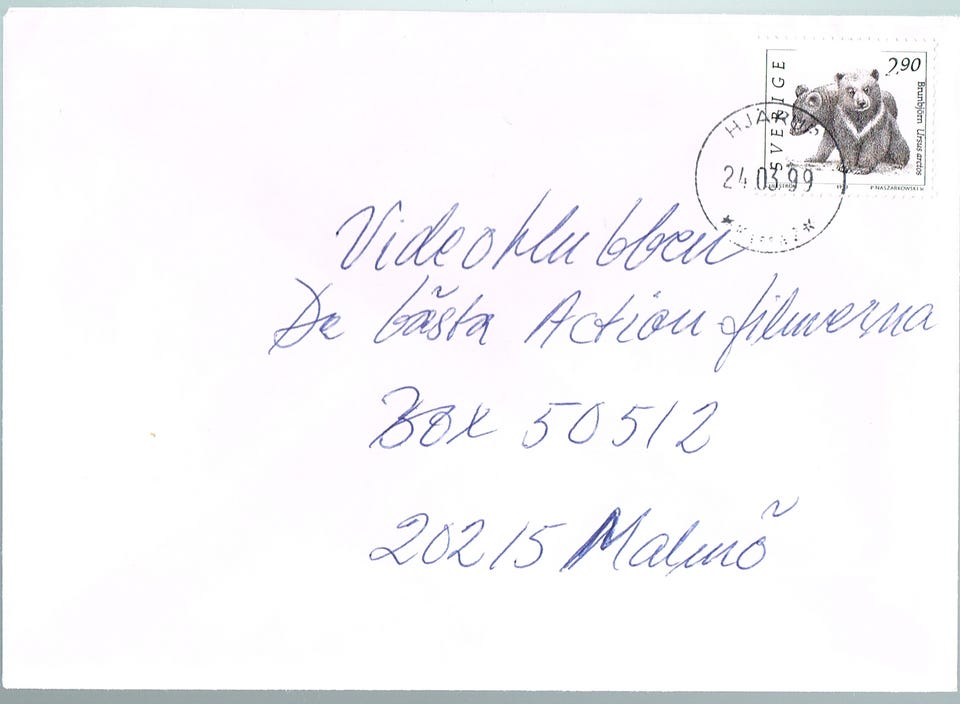 SVERIGE
2,90
Brunbjörn Ursus arctos
P NASZARKOWSKI
24.03.99
Videoklubben
De bästa Action filmerna
Box 50512
20215 Malmö